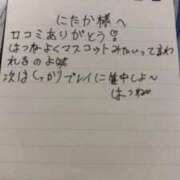 にたか様へ
口コミありがとう!
はつなよくマスコットみたいって言わ
れるのよ
次はしっかりプレイに集中しよ〜
はつね